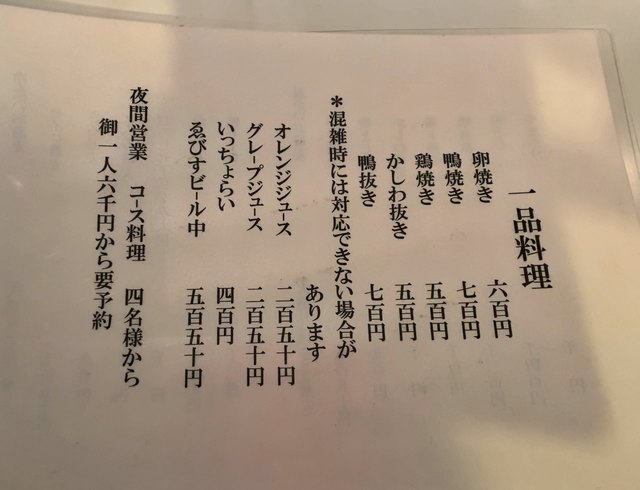 一品料理
卵焼き 六百円
鴨焼き 七百円
鶏焼き 五百円
かしわ抜き 五百円
鴨抜き 七百円
*混雑時には対応できない場合が
あります
オレンジジュース 二百五十円
グレープジュース 二百五十円
いっちょらい 四百円
ゑびすビール中 五百五十円
夜間営業 コース料理 四名様から
御一人六千円から要予約